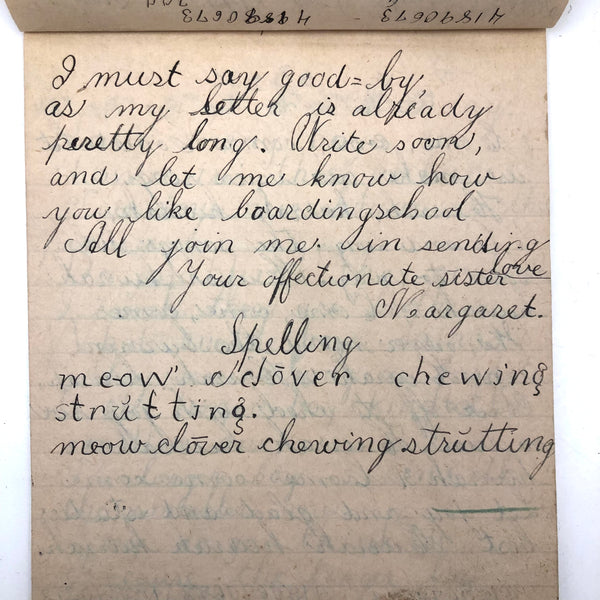 I must say good=by,
as my letter is already
peretty long. Write soon,
and let me know how
you like boardingschool
All join me. in sending
love
Your affectionate sister
Margaret.
Spelling
meow' clōver chewing
strŭtting.
meow clōver chewing strŭtting